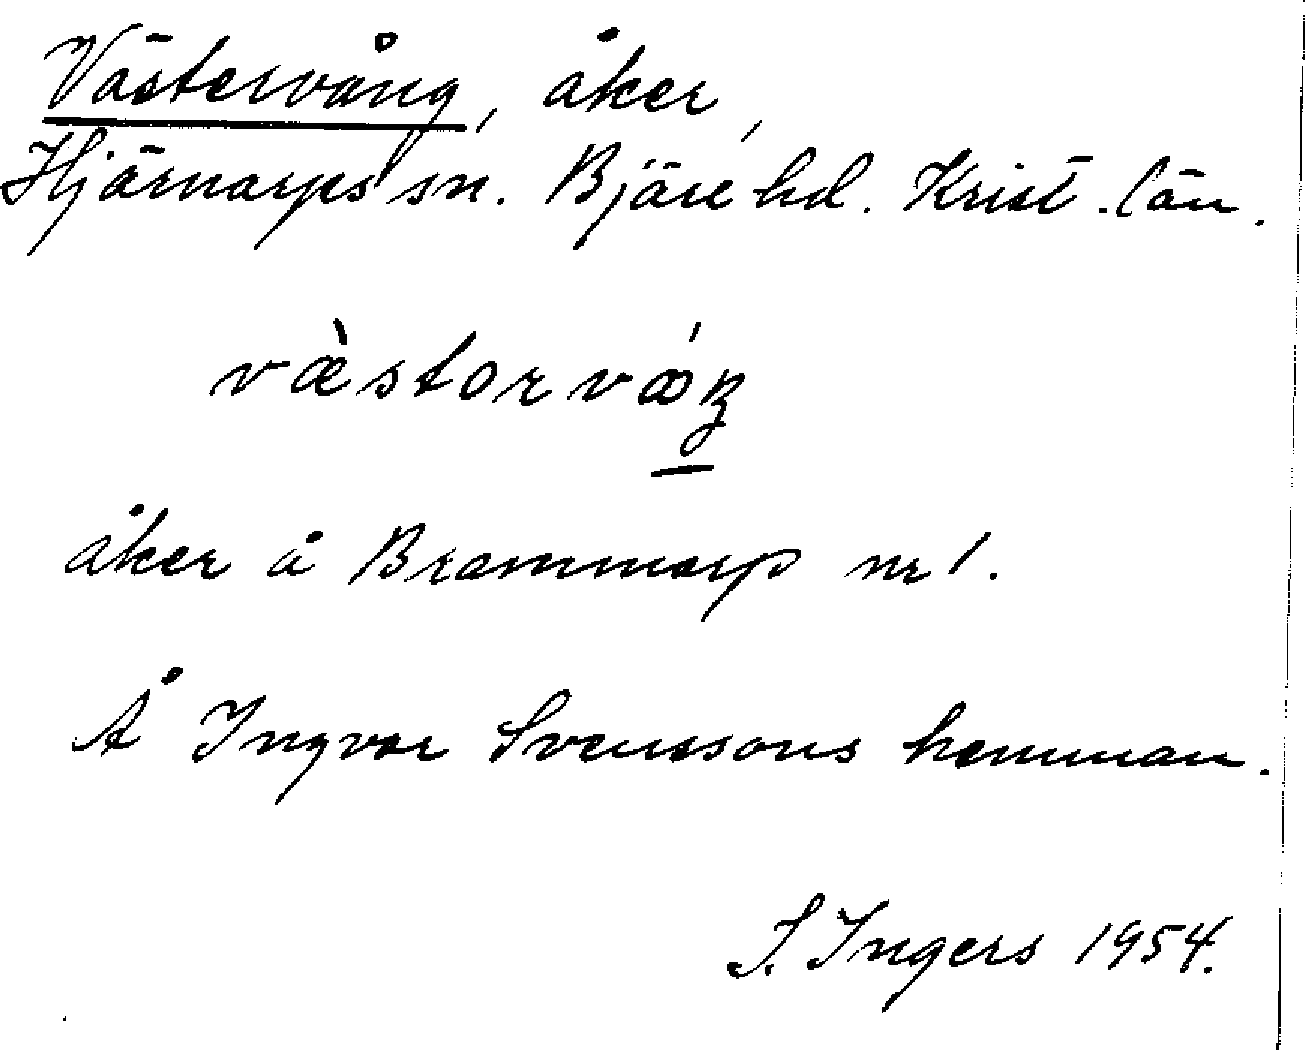 Västervång, åker,
Hjärnarps sn. Bjäre hd. Krist. län.
væ̀storvá̱ŋ
åker å Brammarp nr 1.
Å Ingvar Svenssons hemman.
I. Ingers 1954.